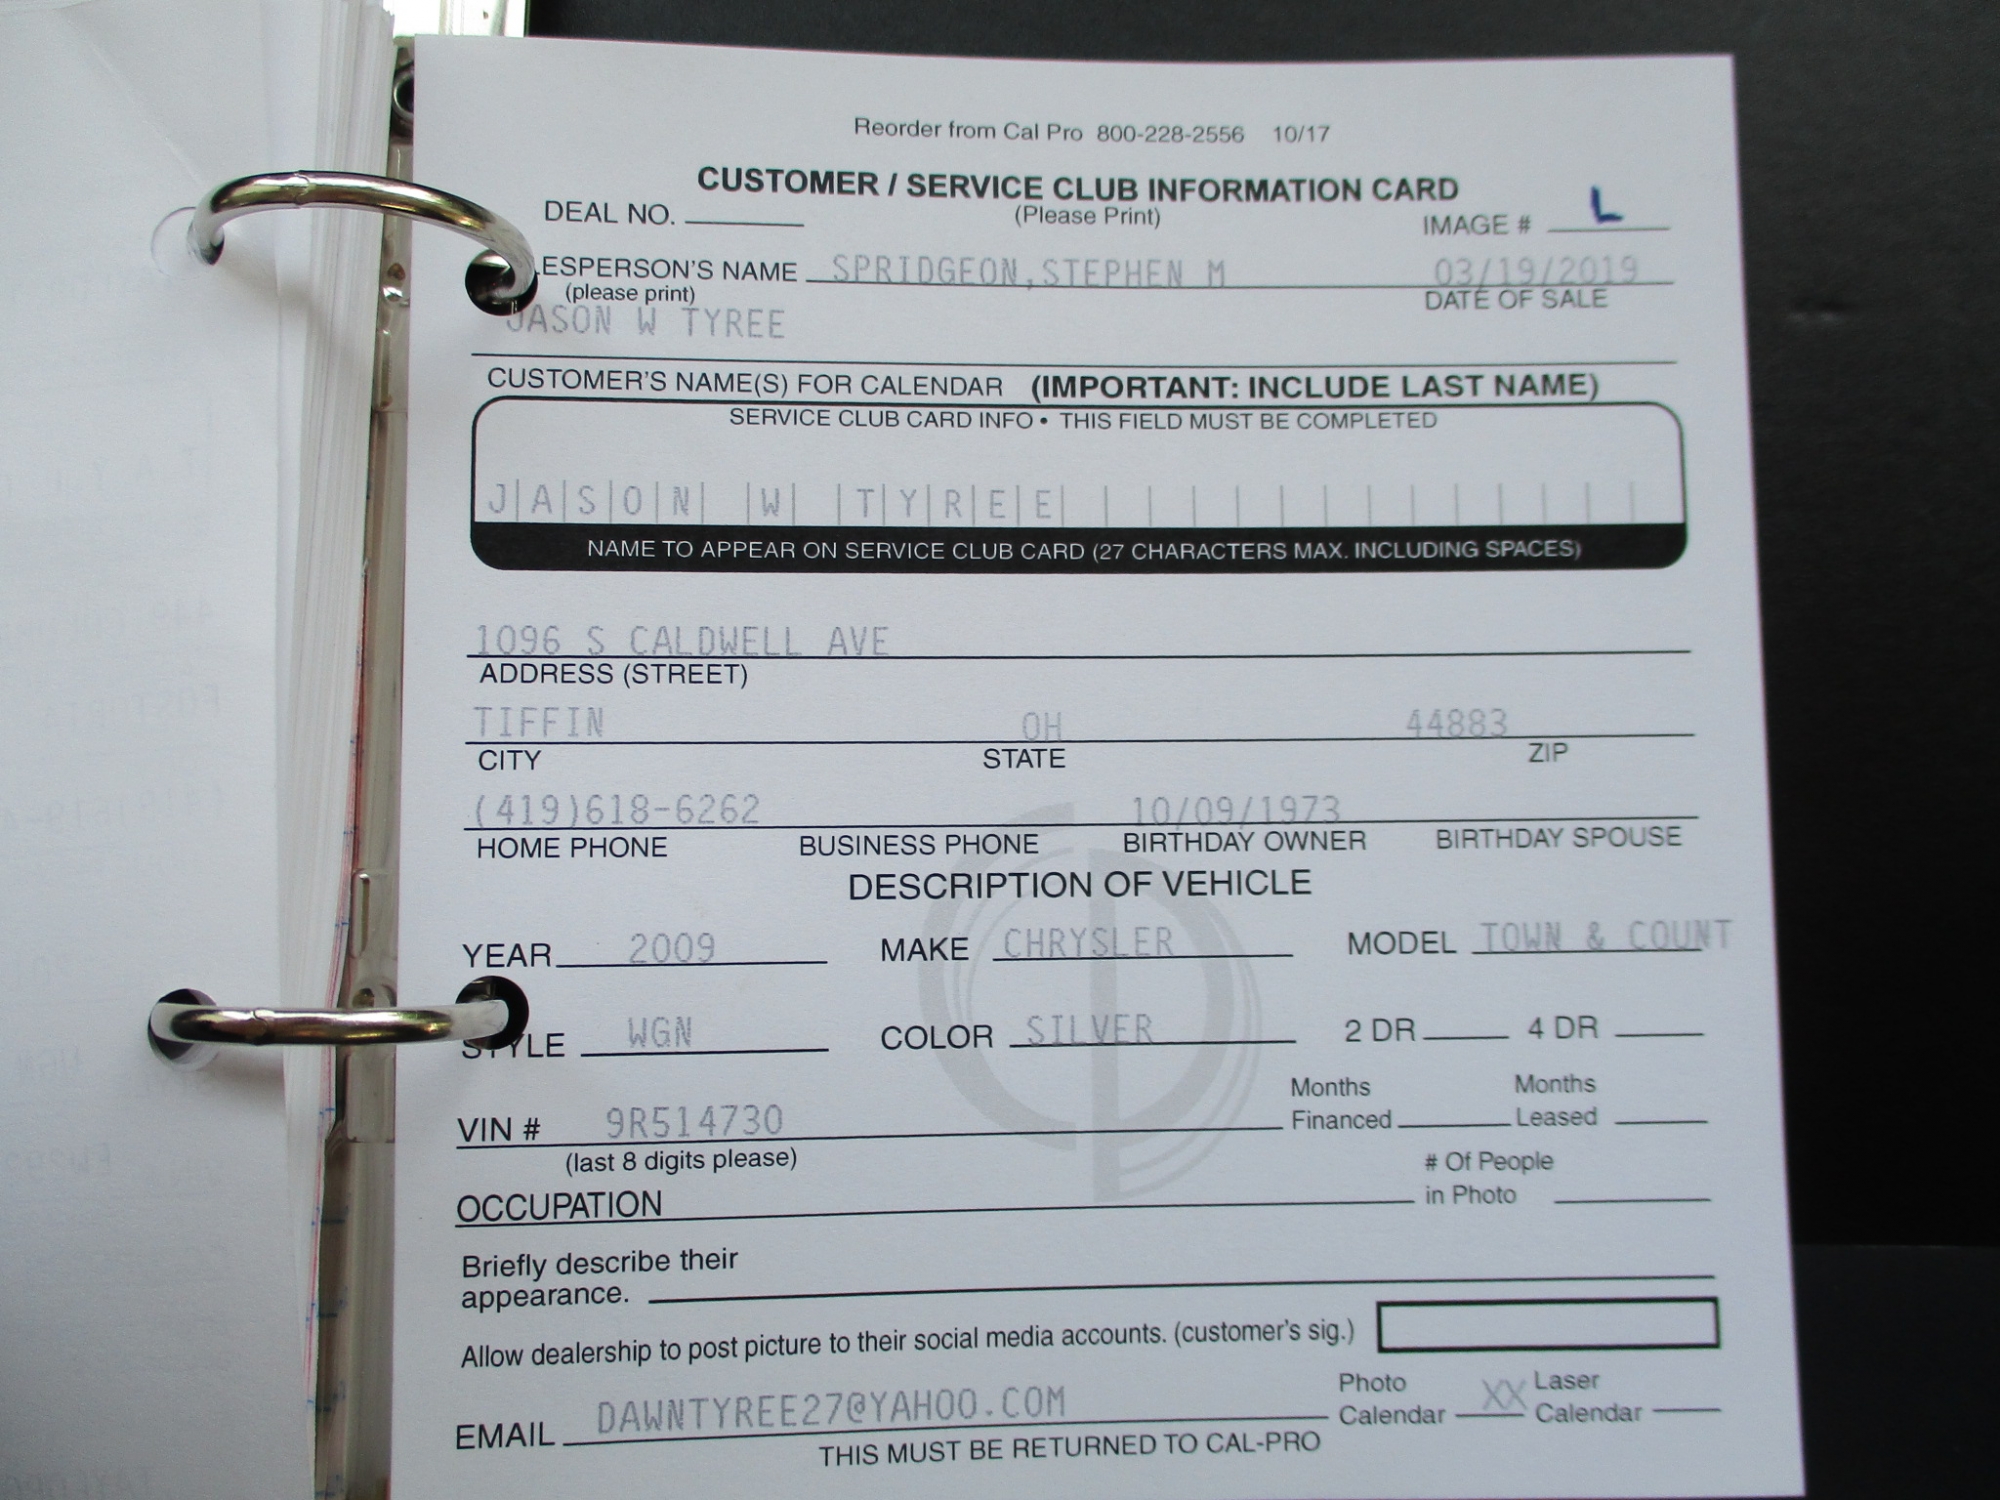 Reorder from Cal Pro 800-228-2556 10/17
CUSTOMER / SERVICE CLUB INFORMATION CARD
DEAL NO. (Please Print) IMAGE # L
LESPERSON'S NAME SPRIDGEON,STEPHEN M 03/19/2019
(please print) DATE OF SALE
JASON W TYREE
CUSTOMER'S NAME(S) FOR CALENDAR (IMPORTANT: INCLUDE LAST NAME)
SERVICE CLUB CARD INFO • THIS FIELD MUST BE COMPLETED
JASON W TYREE
NAME TO APPEAR ON SERVICE CLUB CARD (27 CHARACTERS MAX. INCLUDING SPACES)
1096 S CALDWELL AVE
ADDRESS (STREET)
TIFFIN OH 44883
CITY STATE ZIP
(419)618-6262 10/09/1973
HOME PHONE BUSINESS PHONE BIRTHDAY OWNER BIRTHDAY SPOUSE
DESCRIPTION OF VEHICLE
YEAR 2009 MAKE CHRYSLER MODEL TOWN & COUNT
STYLE WGN COLOR SILVER 2 DR 4 DR
VIN # 9R514730 Months Financed Months Leased
(last 8 digits please) # Of People in Photo
OCCUPATION
Briefly describe their
appearance.
Allow dealership to post picture to their social media accounts. (customer's sig.)
EMAIL DAWNTYREE27@YAHOO.COM Photo Calendar XX Laser Calendar
THIS MUST BE RETURNED TO CAL-PRO